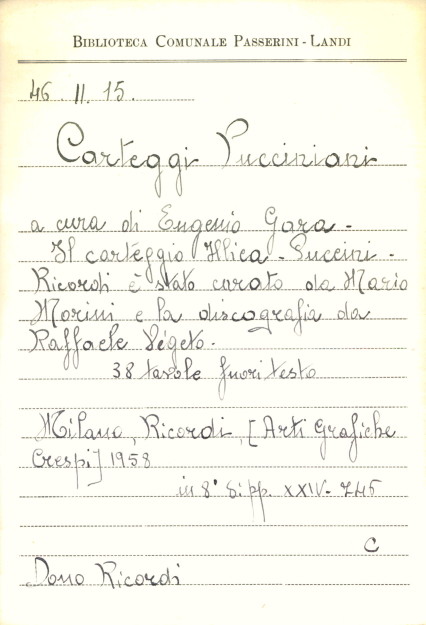 BIBLIOTECA COMUNALE PASSERINI - LANDI
46. II. 15.
Carteggi Pucciniani
a cura di Eugenio Gara -
Il carteggio Illica - Puccini -
Ricordi è stato curato da Mario
Morini e la discografia da
Raffaele Végeto.
38 tavole fuori testo
Milano, Ricordi, [Arti Grafiche
Crespi] 1958
in 8° di pp. XXIV - 745
C
Dono Ricordi